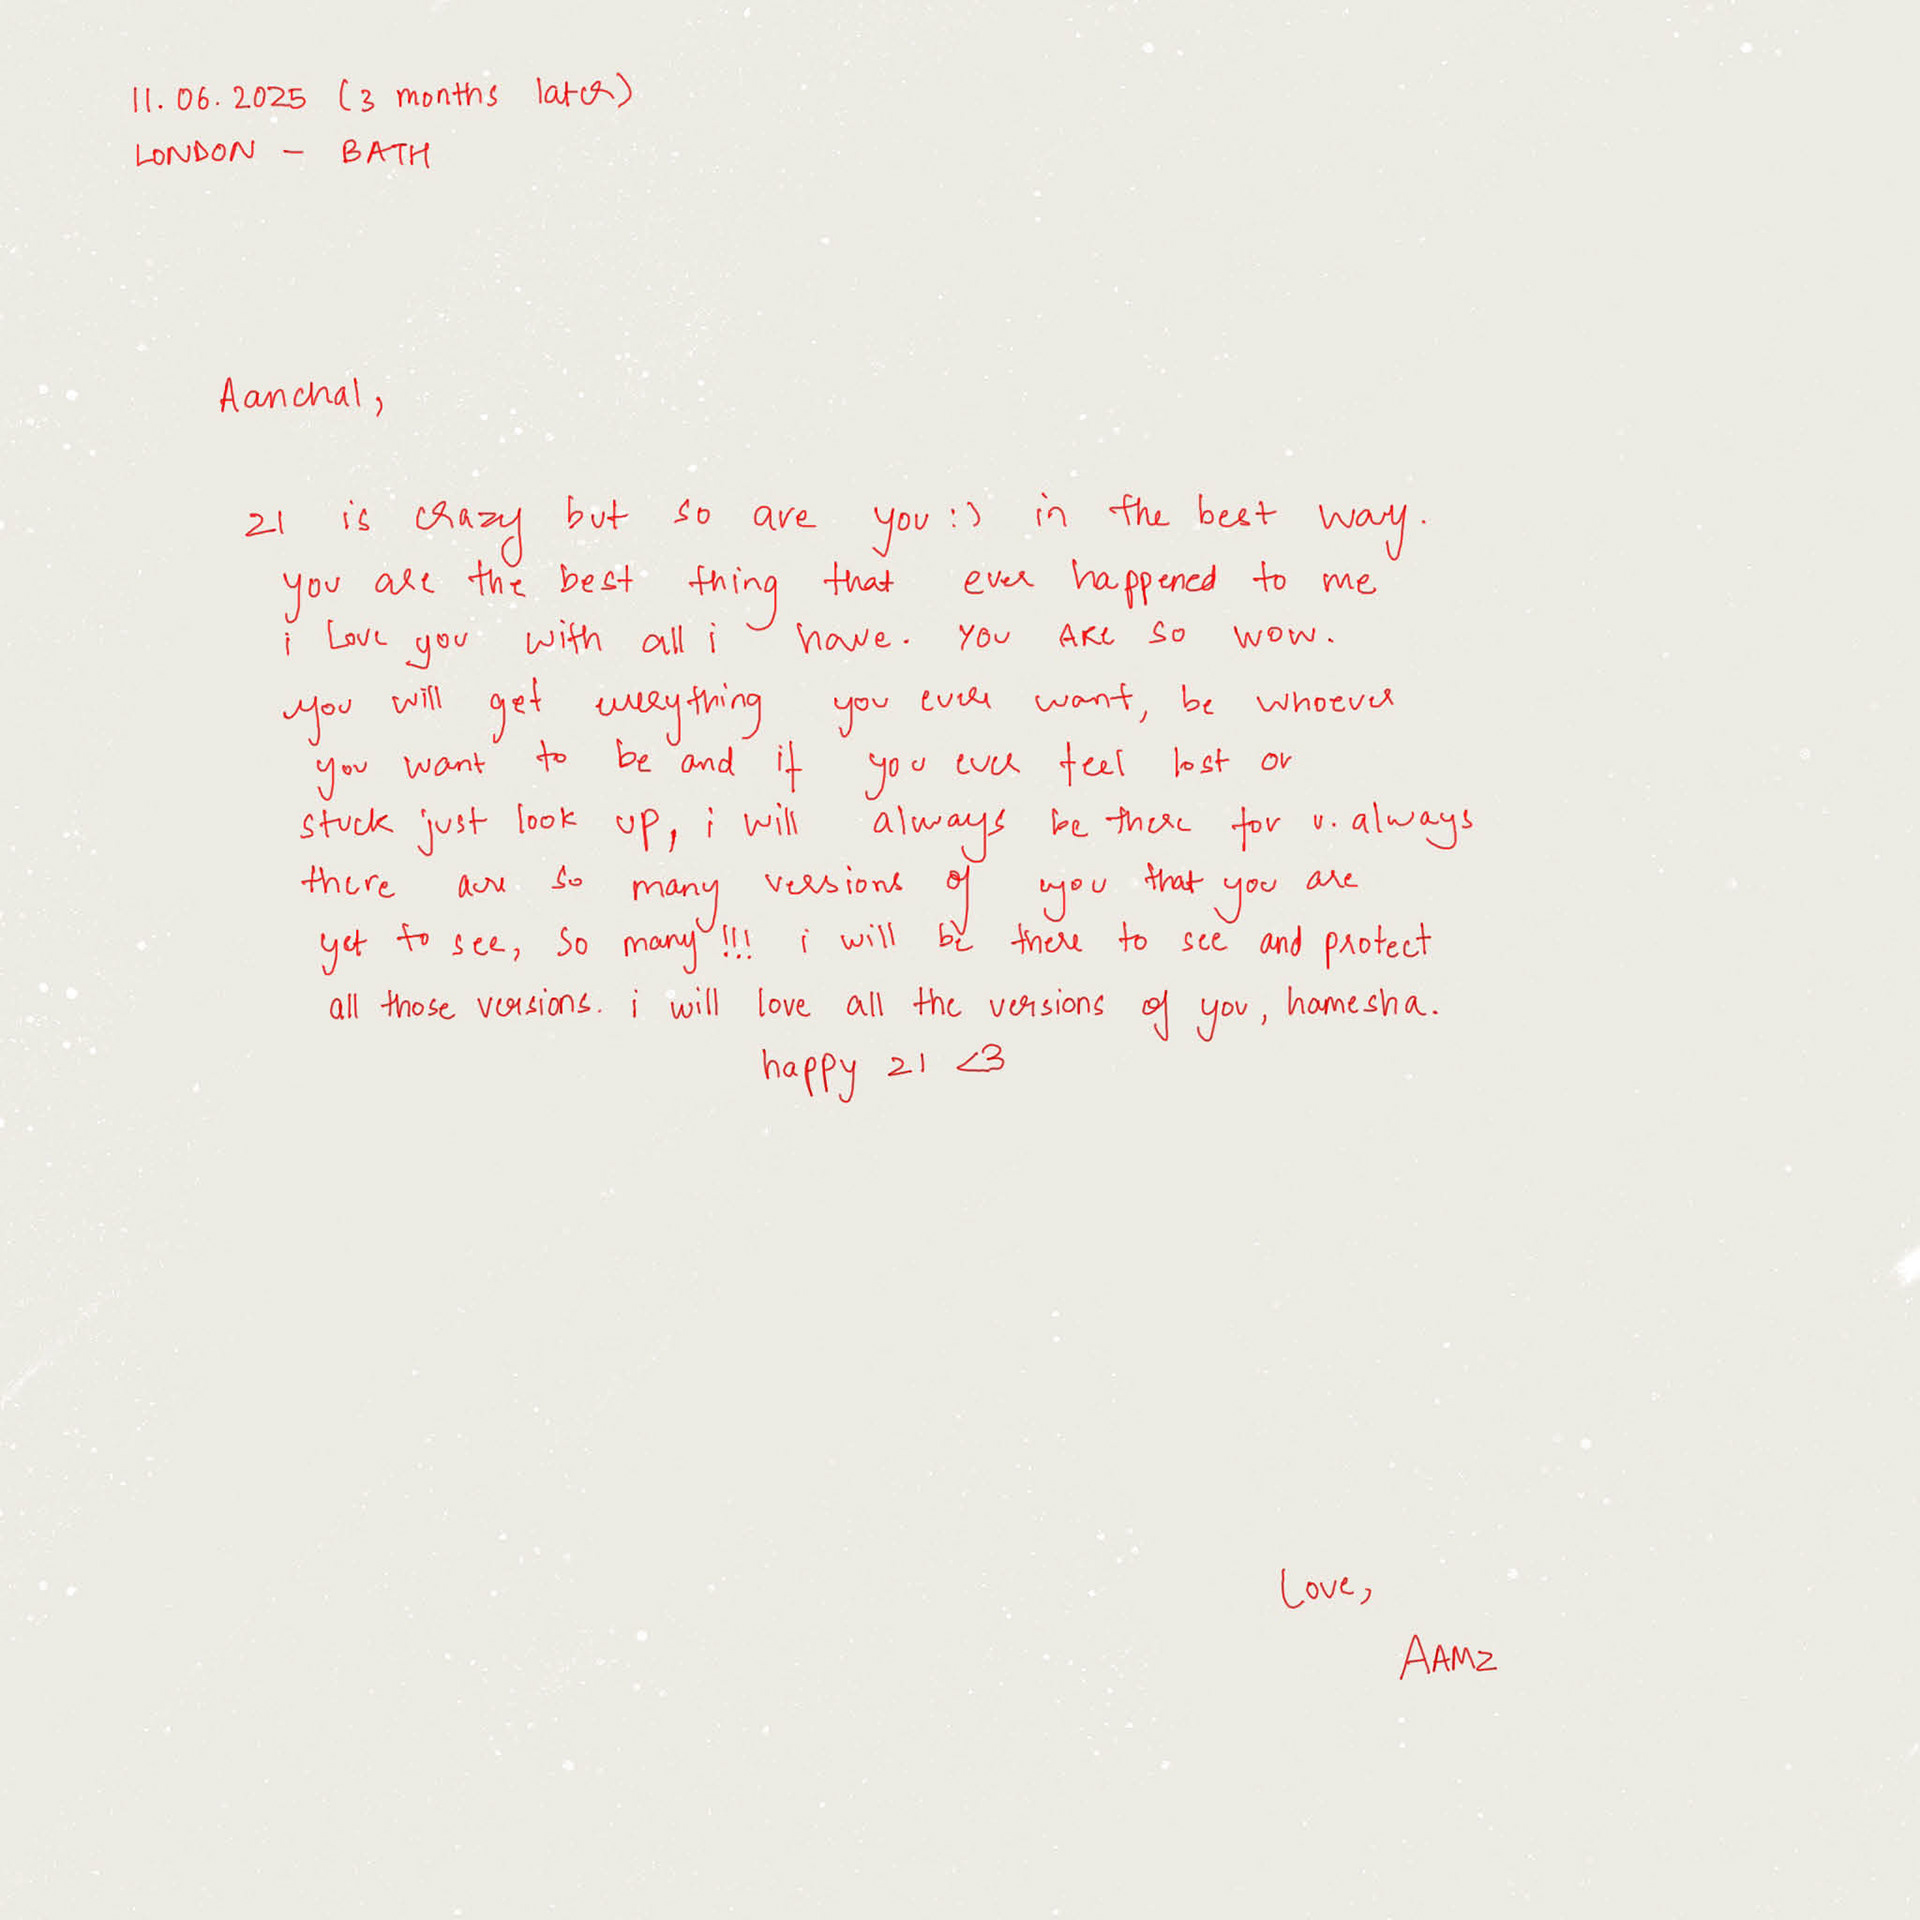 11.06.2025 (3 months later)
LONDON - BATH
Aanchal,
21 is crazy but so are you :) in the best way.
you are the best thing that ever happened to me
i love you with all i have. YOU ARE SO WOW.
you will get everything you ever want, be whoever
you want to be and if you ever feel lost or
stuck just look up, i will always be there for u. always
there are so many versions of you that you are
yet to see, so many!!! i will be there to see and protect
all those versions. i will love all the versions of you, hamesha.
happy 21 <3
Love,
AAMZ